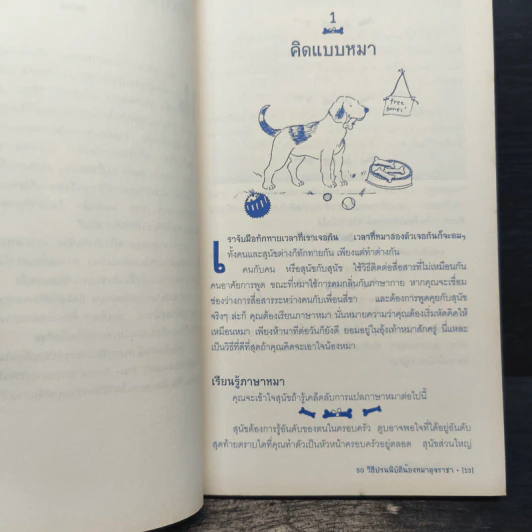 1
คิดแบบหมา
free
bones!
เราจับมือทักทายเวลาที่เราเจอกัน เวลาที่หมาสองตัวเจอกันก็จะดมๆ
ทั้งคนและสุนัขต่างก็ทักทายกัน เพียงแต่ทำต่างกัน
คนกับคน หรือสุนัขกับสุนัข ใช้วิธีติดต่อสื่อสารที่ไม่เหมือนกัน
คนอาศัยการพูด ขณะที่หมาใช้การดมกลิ่นกับภาษากาย หากคุณจะเชื่อม
ช่องว่างการสื่อสารระหว่างคนกับเพื่อนสี่ขา และต้องการพูดคุยกับสุนัข
จริงๆ ล่ะก็ คุณต้องเรียนภาษาหมา นั่นหมายความว่าคุณต้องเริ่มหัดคิดให้
เหมือนหมา เพียงห้านาทีต่อวันก็ยังดี ยอมอยู่ในอุ้งเท้าหมาสักครู่ นี่แหละ
เป็นวิธีที่ดีที่สุดถ้าคุณคิดจะเอาใจน้องหมา
เรียนรู้ภาษาหมา
คุณจะเข้าใจสุนัขถ้ารู้เคล็ดลับการแปลภาษาหมาต่อไปนี้
สุนัขต้องการรู้อันดับของตนในครอบครัว ตูบอาจพอใจที่ได้อยู่อันดับ
สุดท้ายตราบใดที่คุณทำตัวเป็นหัวหน้าครอบครัวอยู่ตลอด สุนัขส่วนใหญ่
50 วิธีปรนนิบัติน้องหมาดุจราชา • [13]